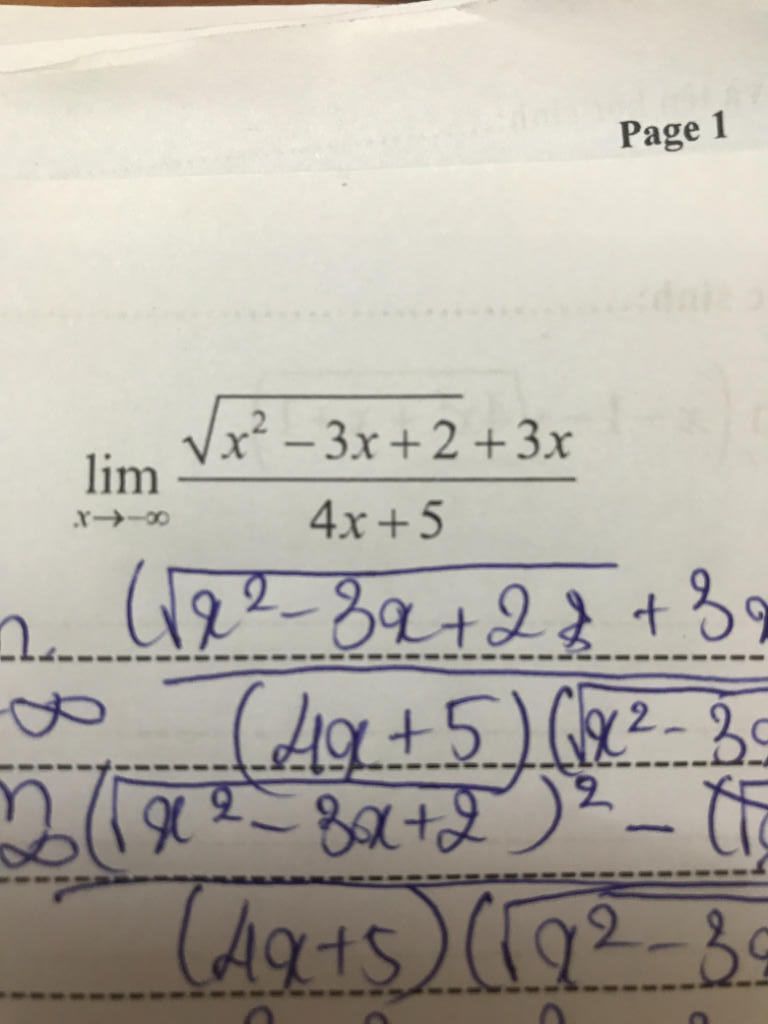 Page 1
lim x→-∞ (√(x² - 3x + 2) + 3x) / (4x + 5)
(√x² - 3x + 2 + 3x
-∞ (4x + 5)(√x² - 3x
(√x² - 3x + 2)² - (√
∞ (4x + 5)(√x² - 3x